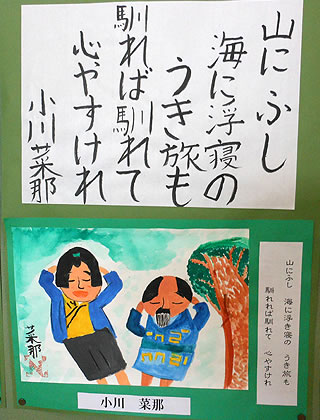 山にふし
海に浮寝の
うき旅も
馴れば馴れて
心やすけれ
小川菜那
菜那
山にふし　海に浮き寝の　うき旅も
馴れれば馴れて　心やすけれ
小川　菜那